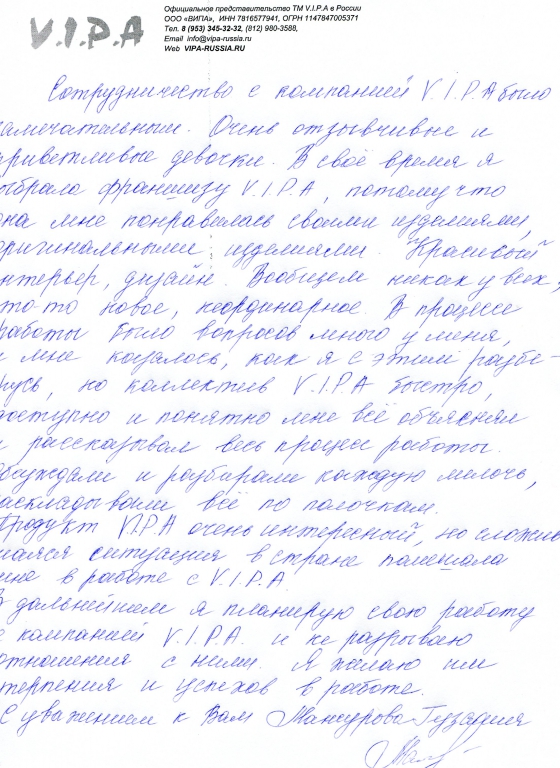 V.I.P.A
Официальное представительство ТМ V.I.P.A в России
ООО «ВИПА», ИНН 7816577941, ОГРН 1147847005371
Тел. 8 (953) 345-32-32, (812) 980-3588,
Email info@vipa-russia.ru
Web VIPA-RUSSIA.RU
Сотрудничество с компанией V.I.P.A было
амечательным. Очень отзывчивые и
приветливые девочки. В своё время я
ыбрала франшизу V.I.P.A, потому что
на мне понравилась своими изделиями,
ригинальными изделиями. Красивый
нтерьер, дизайн. Вообщем никак у всех,
то-то новое, неординарное. В процессе
работы было вопросов много у меня,
и мне казалось, как я с этим разбе-
русь, но коллектив V.I.P.A быстро,
доступно и понятно мне всё объяснял
и рассказывал весь процесс работы.
Обсуждали и разбирали каждую мелочь,
раскладывали всё по полочкам.
Продукт V.I.P.A очень интересный, но сложив
шаяся ситуация в стране помешала
мне в работе с V.I.P.A
В дальнейшем я планирую свою работу
с компанией V.I.P.A. и не разрываю
отношения с ними. Я желаю им
терпения и успехов в работе.
С уважением к Вам Мансурова Гузалия